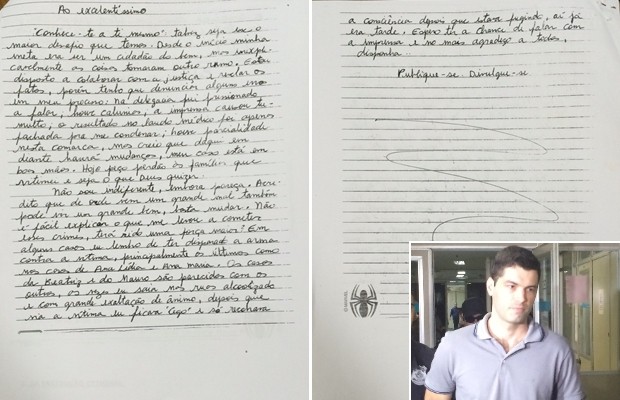 Ao excelentíssimo
"Conhece-te a ti mesmo" talvez seja esse o
maior desafio que temos. Desde o início minha
meta era ser um cidadão do bem, mas inexpli-
cavelmente as coisas tomaram outro rumo. Estou
disposto a colaborar com a justiça e relatar os
fatos, porém tenho que denunciar alguns erros
em meu processo: Na delegacia fui pressionado
a falar, houve calúnias, a imprensa causou tu-
multo, o resultado no laudo médico foi apenas
fachada pra me condenar; houve parcialidade
nesta comarca, mas creio que daqui em
diante haverá mudanças, meu caso está em
boas mãos. Hoje peço perdão às famílias que
vitimei e seja o que Deus quizer.
Não sou indiferente, embora pareça. Acre-
dito que de onde vem um grande mal também
pode vir um grande bem, basta mudar. Não
é fácil explicar o que me levou a cometer
esses crimes, terá sido uma força maior? Em
alguns casos eu lembro de ter disparado a arma
contra a vítima, principalmente os últimos como
nos casos de Ana Lídia e Ana Maria. Os casos
da Beatriz e do Mauro são parecidos com os
outros, ou seja eu saía nas ruas alcoolizado
e com grande exaltação de ânimo, depois que
via a vítima eu ficava "cego" e só recobrava
a consciência depois que estava fugindo, aí já
era tarde. Espero ter a chance de falar com
a imprensa e no mais agradeço a todos,
disponha.
Publique-se. Divulgue-se